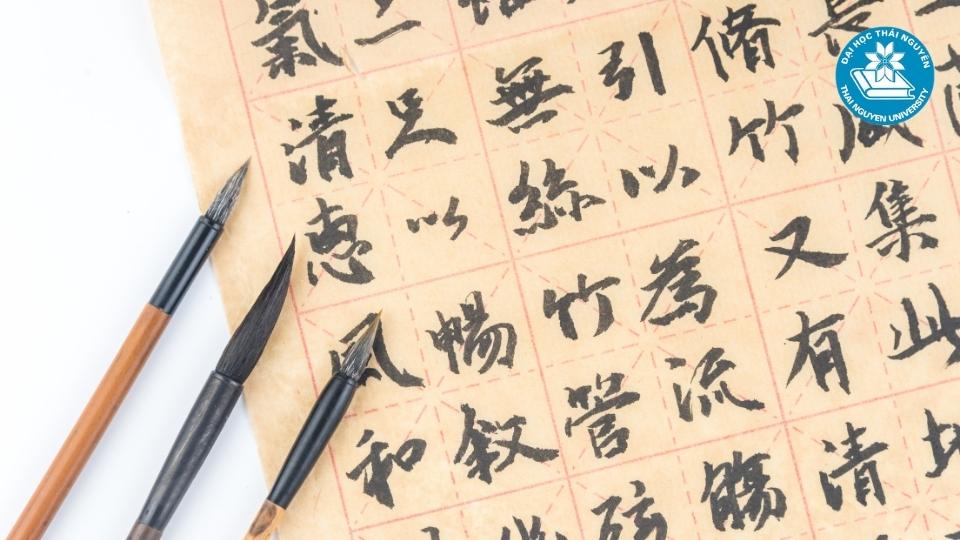 長咸集此
脩竹又有清
引以為流觴
無絲竹管弦
足以暢叙
氣清惠風和
ĐẠI HỌC THÁI NGUYÊN
THAI NGUYEN UNIVERSITY